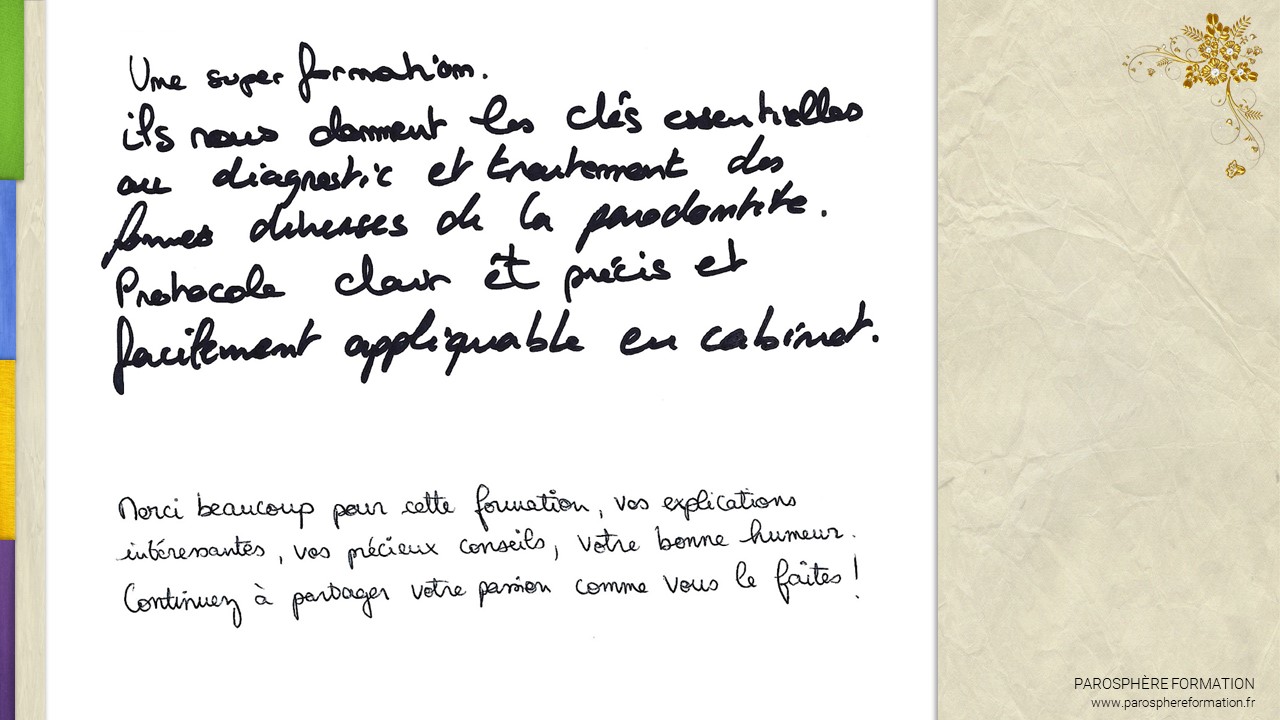 Une super formation.
ils nous donnent les clés essentielles
au diagnostic et traitement des
formes diverses de la parodontite.
Protocole clair et précis et
facilement appliquable en cabinet.
Merci beaucoup pour cette formation, vos explications
intéressantes, vos précieux conseils, votre bonne humeur.
Continuez à partager votre passion comme vous le faîtes !
PAROSPHÈRE FORMATION
www.parosphereformation.fr